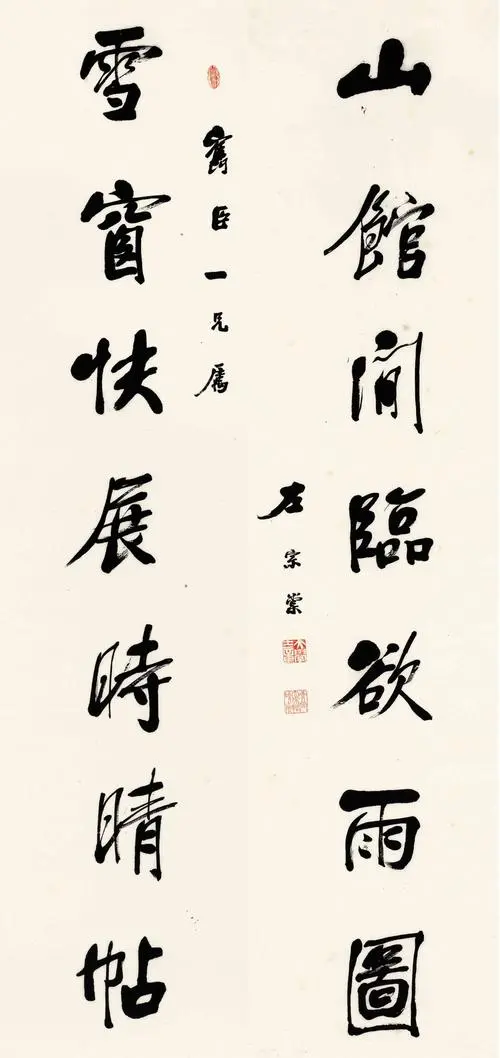 雪窗快展時晴帖
寯臣一兄屬
山館閒臨欲雨圖
左宗棠